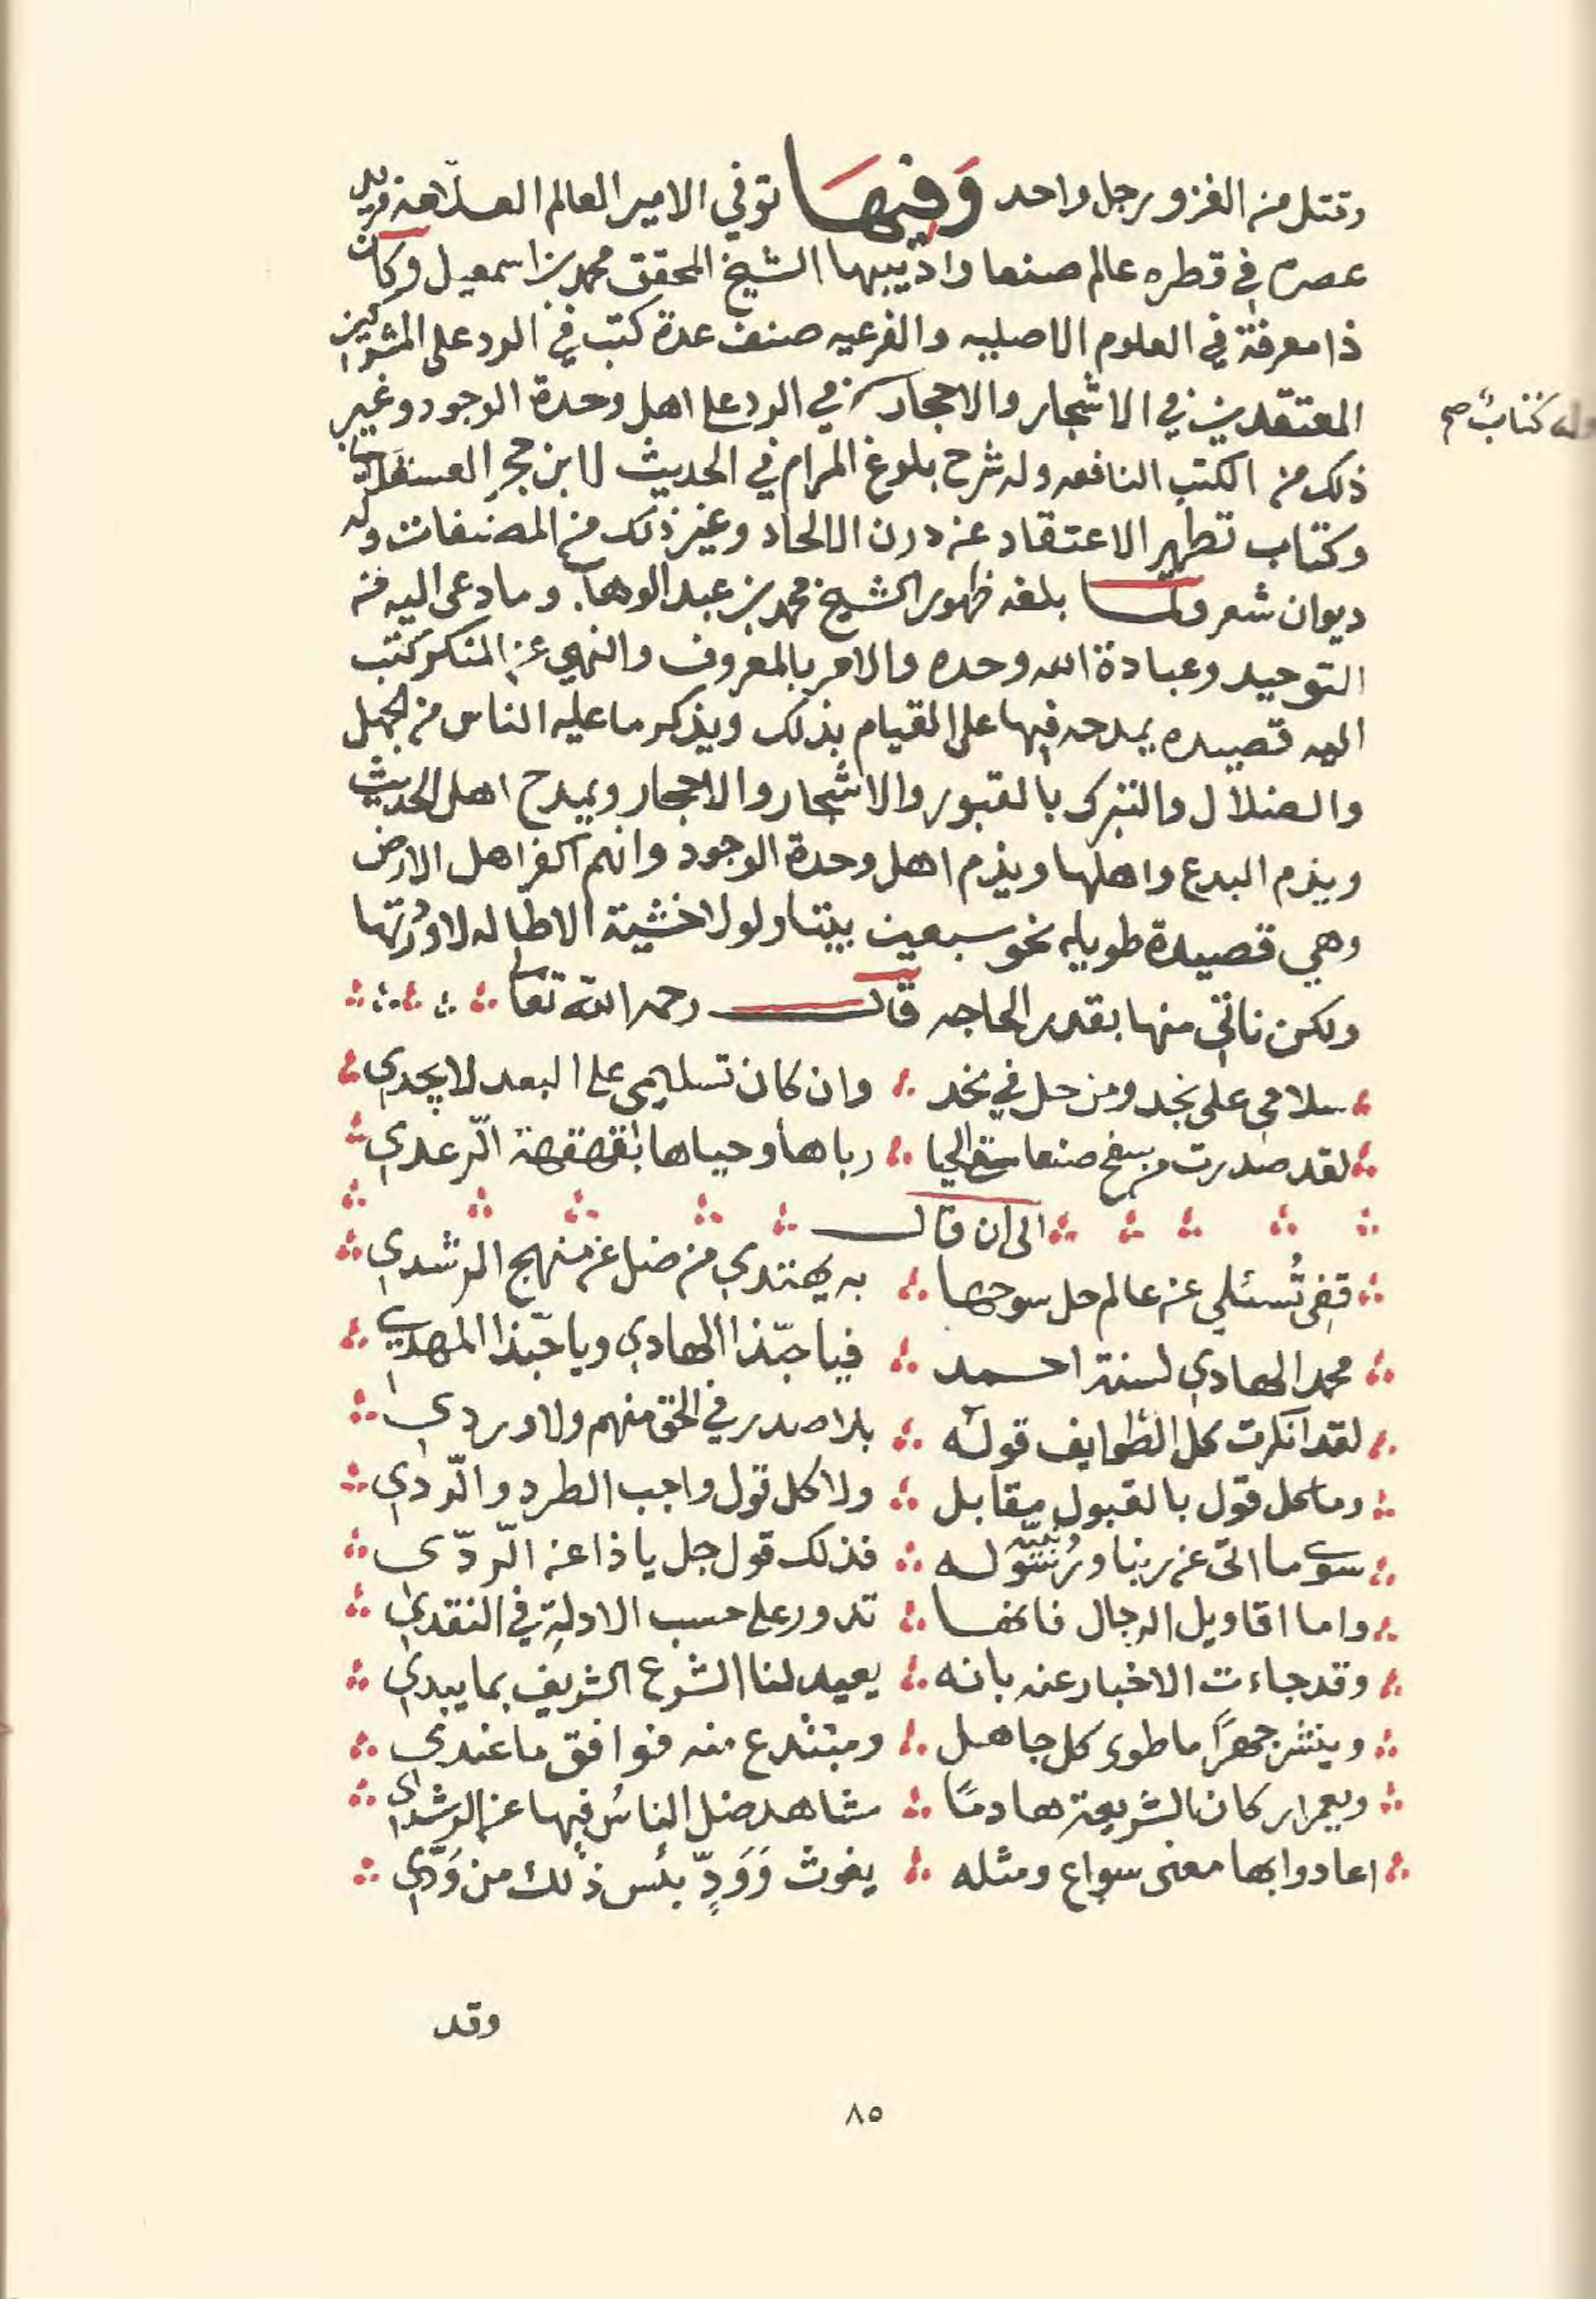 وقتل من الغزو رجل واحد وَفِيهَا توفي الامير العالم العلّامة فريد
عصره في قطره عالم صنعا واديبها الشيخ المحقق محمد بن اسمعيل وكان
ذا معرفة في العلوم الاصليه والفرعيه صنف عدة كتب في الرد على المشركين
المعتقدين في الاشجار والاحجار في الرد على اهل وحدة الوجود وغير
وله كتاب صح
ذلك من الكتب النافعه وله شرح بلوغ المرام في الحديث لابن حجر العسقلاني
وكتاب تطهير الاعتقاد عن درن الالحاد وغير ذلك من المصنفات وله
ديوان شعر ولما بلغه ظهور الشيخ محمد بن عبد الوهاب وما دعى اليه من
التوحيد وعبادة الله وحده والامر بالمعروف والنهي عن المنكر كتب
اليه قصيده يمدحه فيها على القيام بذلك ويذكر ما عليه الناس من الجهل
والضلال والتبرك بالقبور والاشجار والاحجار ويمدح اهل الحديث
ويذم البدع واهلها ويذم اهل وحدة الوجود وانهم اكفر اهل الارض
وهي قصيدة طويله نحو سبعين بيتا ولولا خشية الاطاله لاوردتها
ولكن ناتي منها بقدر الحاجه قال رحمه الله تعالى
سلامي على نجد ومن حل في نجد وان كان تسليمي على البعد لا يجدي
لقد صدرت من سفح صنعا سقى الحيا رباها وحياها بقهقهة الرّعدي
الى ان قال
قفي تُسئلي عن عالم حل سوحها به يهتدي من ضل عن منهج الرشدي
محمد الهادي لسنة احمد فيا حبّذا الهادي ويا حبّذا المهدي
لقد انكرت كل الطوايف قوله بلا صدر في الحق منهم ولا وردي
وما كل قول بالقبول مقابل ولا كل قول واجب الطرد والرّدي
سوى ما اتى عن ربنا ورسوله فذلك قول جل يا ذا عن الرّدّى
واما اقاويل الرجال فانها تدور على حسب الادلة في النقدي
وقد جاءت الاخبار عنه بانه يعيد لنا الشرع الشريف بما يبدي
وينشر جهرًا ما طوى كل جاهل ومبتدع منه فوافق ما عندي
ويعمر اركان الشريعة هادمًا مشاهد ضل الناسُ فيها عن الرشدي
اعادوا بها معنى سواع ومثله يغوث وَوَدٍّ بئس ذلك من وَدّي
وقد
٨٥